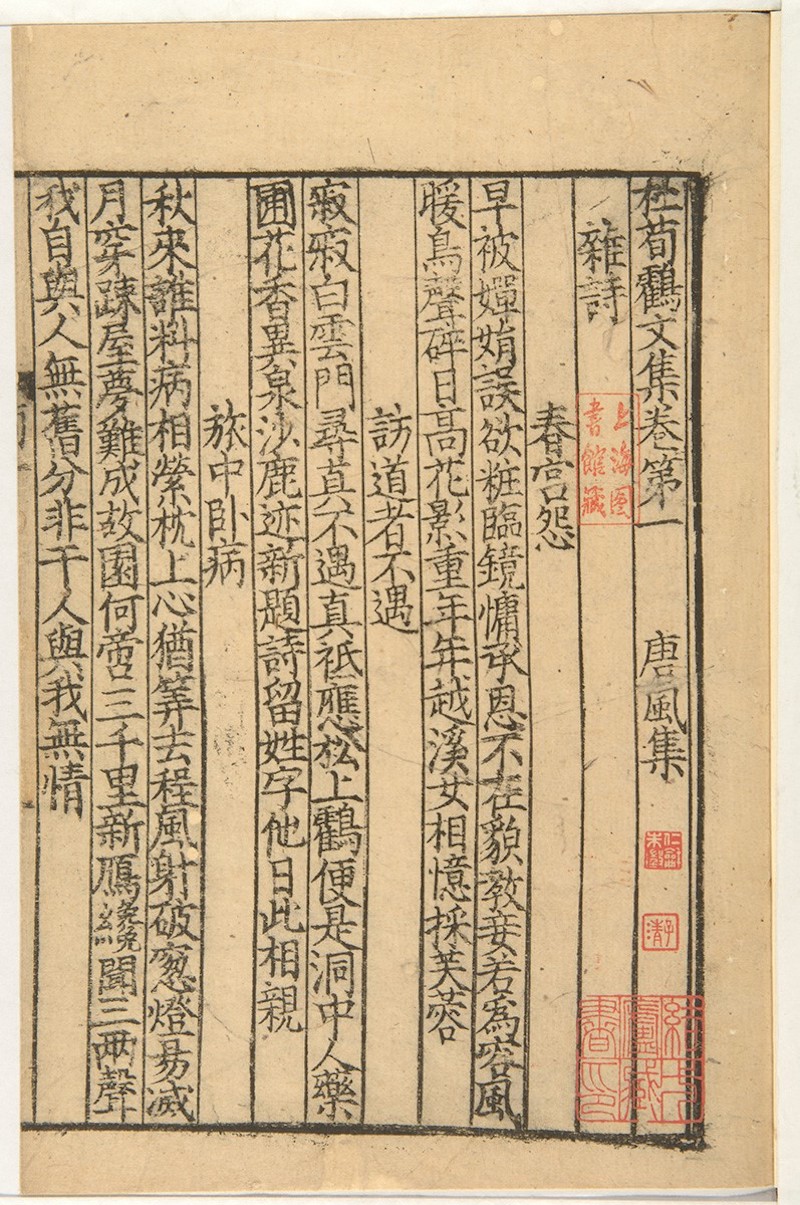 杜荀鶴文集卷第一 唐風集
雜詩
春宮怨
早被嬋娟誤欲粧臨鏡慵承恩不在貌教妾若爲容風
暖鳥聲碎日高花影重年年越溪女相憶採芙蓉
訪道者不遇
寂寂白雲門尋真不遇真祗應松上鶴便是洞中人藥
圃花香異泉沙鹿迹新題詩留姓字他日此相親
旅中卧病
秋來誰料病相縈枕上心猶筭去程風射破窻燈易滅
月穿疎屋夢難成故園何啻三千里新鴈纔聞三兩聲
我自與人無舊分非干人與我無情
上海圖
書館藏
子清